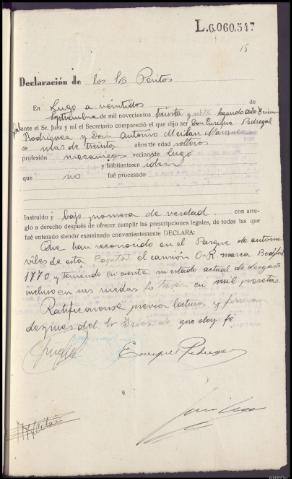 L.6.060.547
15
Declaración de los Srs Peritos
En Lugo a veintidos de
septiembre de mil novecientos treinta y siete
ante el Sr. Juez y mi el Secretario compareció el que dijo ser Don Enrique Pedregal
Rodriguez y Don Antonio Meilan
mas de treinta años de edad
profesión mecanicos vecino de Lugo
y habitante en idem
que no fué procesado
Instruído y bajo promesa de verdad con arre-
glo a derecho después de ofrecer cumplir las prescripciones legales, de todas las que
fué enterado siendo examinado convenientemente DECLARA:
Que han reconocido en el Parque de automo-
viles de esta Capital el camión marca
1770 y teniendo en cuenta su estado actual de desgaste
incluso en sus ruedas lo tasan en mil pesetas
Ratificaronse previa lectura y firman
despues del Sr que doy fé
Enrique Pedregal